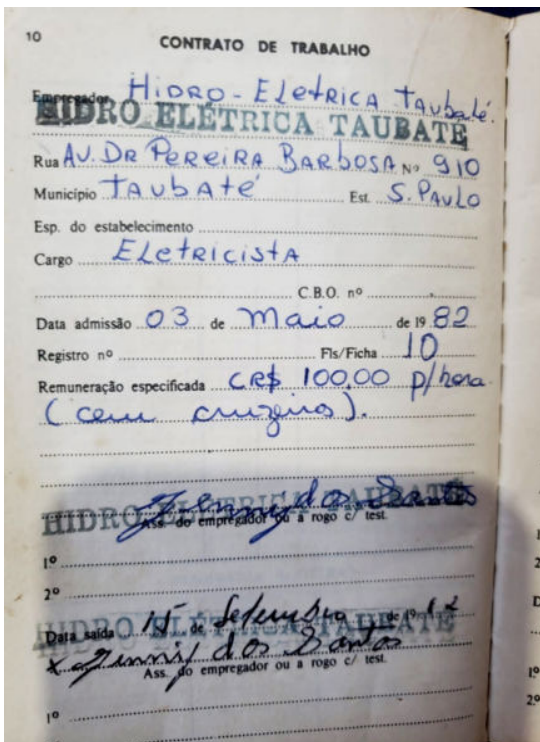 10
CONTRATO DE TRABALHO
Empregador Hidro-Eletrica Taubaté.
HIDRO ELÉTRICA TAUBATÉ
Rua Av. Dr Pereira Barbosa Nº 910
Município Taubaté Est. S. Paulo
Esp. do estabelecimento
Cargo Eletricista
C.B.O. nº
Data admissão 03 de Maio de 19 82
Registro nº Fls/Ficha 10
Remuneração especificada CR$ 100,00 p/hora
(cem cruzeiros).
dos Santos
HIDRO ELÉTRICA TAUBATÉ
Ass. do empregador ou a rogo c/ test.
1º
2º
HIDRO ELÉTRICA TAUBATÉ
Data saída 15 de Setembro de 19
dos Santos
Ass. do empregador ou a rogo c/ test.
1º
1º
2º